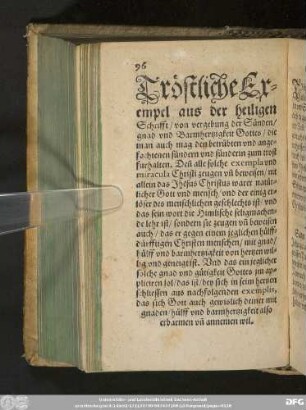 96
Tröstliche Ex-
empel aus der heiligen
Schrifft / von vergebung der Sünden /
gnad vnd Barmhertzigkeit Gottes / die
man auch mag den betrübten vnd ange-
fochtenen sündern vnd sünderin zum trost
furhalten. Deñ alle solche exempla vnd
miracula Christi zeugen vñ beweisen / nit
allein das Jhesus Christus warer natür-
licher Gott vnd mensch / vnd der einig er-
löser des menschlichen geschlechts ist / vnd
das sein wort die Himlische seligmachen-
de lehr ist / sondern sie zeugen vñ beweisen
auch / das er gegen einem jeglichen hülff-
dürfftigen Christen menschen / mit gnad /
hülff vnd barmhertzigkeit von hertzen wil-
lig vnd geneigt ist. Vnd das ein jeglicher
solche gnad vnd gütigkeit Gottes jm ap-
pliciren sol / das ist / bey sich in seim hertzen
schliessen aus nachfolgenden exempeln,
das sich Gott auch gewislich deiner mit
gnaden / hülff vnd barmhertzigkeit also
erbarmen vñ annemen wil.